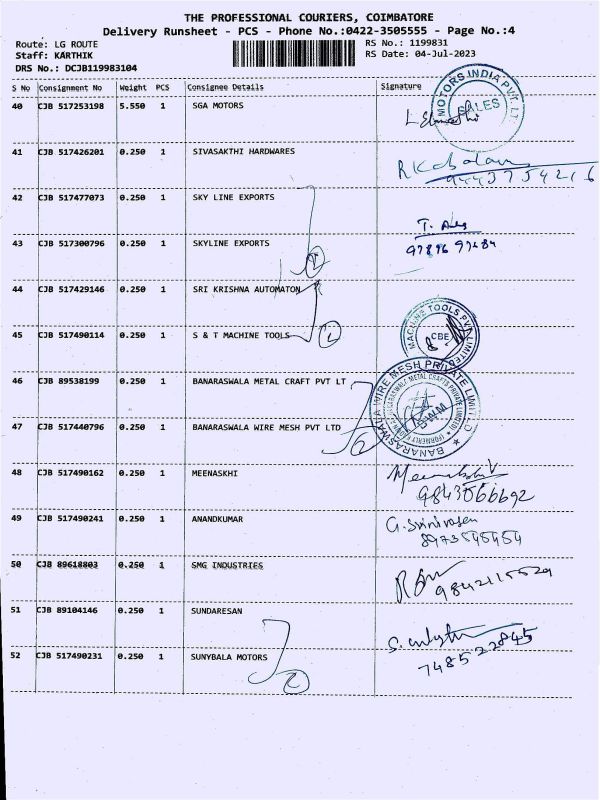 THE PROFESSIONAL COURIERS, COIMBATORE
Delivery Runsheet - PCS - Phone No.:0422-3505555 - Page No.:4
Route: LG ROUTE
RS No.: 1199831
Staff: KARTHIK
RS Date: 04-Jul-2023
DRS No.: DCJB119983104
S No Consignment No Weight PCS Consignee Details Signature
40 CJB 517253198 5.550 1 SGA MOTORS
MOTORS INDIA PVT. LT
SALES
41 CJB 517426201 0.250 1 SIVASAKTHI HARDWARES
9443754216
42 CJB 517477073 0.250 1 SKY LINE EXPORTS
43 CJB 517300796 0.250 1 SKYLINE EXPORTS
44 CJB 517429146 0.250 1 SRI KRISHNA AUTOMATON
45 CJB 517490114 0.250 1 S & T MACHINE TOOLS
MACHINE TOOLS PVT LIMITED
CBE
46 CJB 89538199 0.250 1 BANARASWALA METAL CRAFT PVT LT
47 CJB 517440796 0.250 1 BANARASWALA WIRE MESH PVT LTD
BANARASWALA WIRE MESH PRIVATE LIMITED
BWM
48 CJB 517490162 0.250 1 MEENASKHI
9843066692
49 CJB 517490241 0.250 1 ANANDKUMAR
G. Srinivasan
8973545454
50 CJB 89618803 0.250 1 SMG INDUSTRIES
9842115529
51 CJB 89104146 0.250 1 SUNDARESAN
52 CJB 517490231 0.250 1 SUNYBALA MOTORS
7485222845